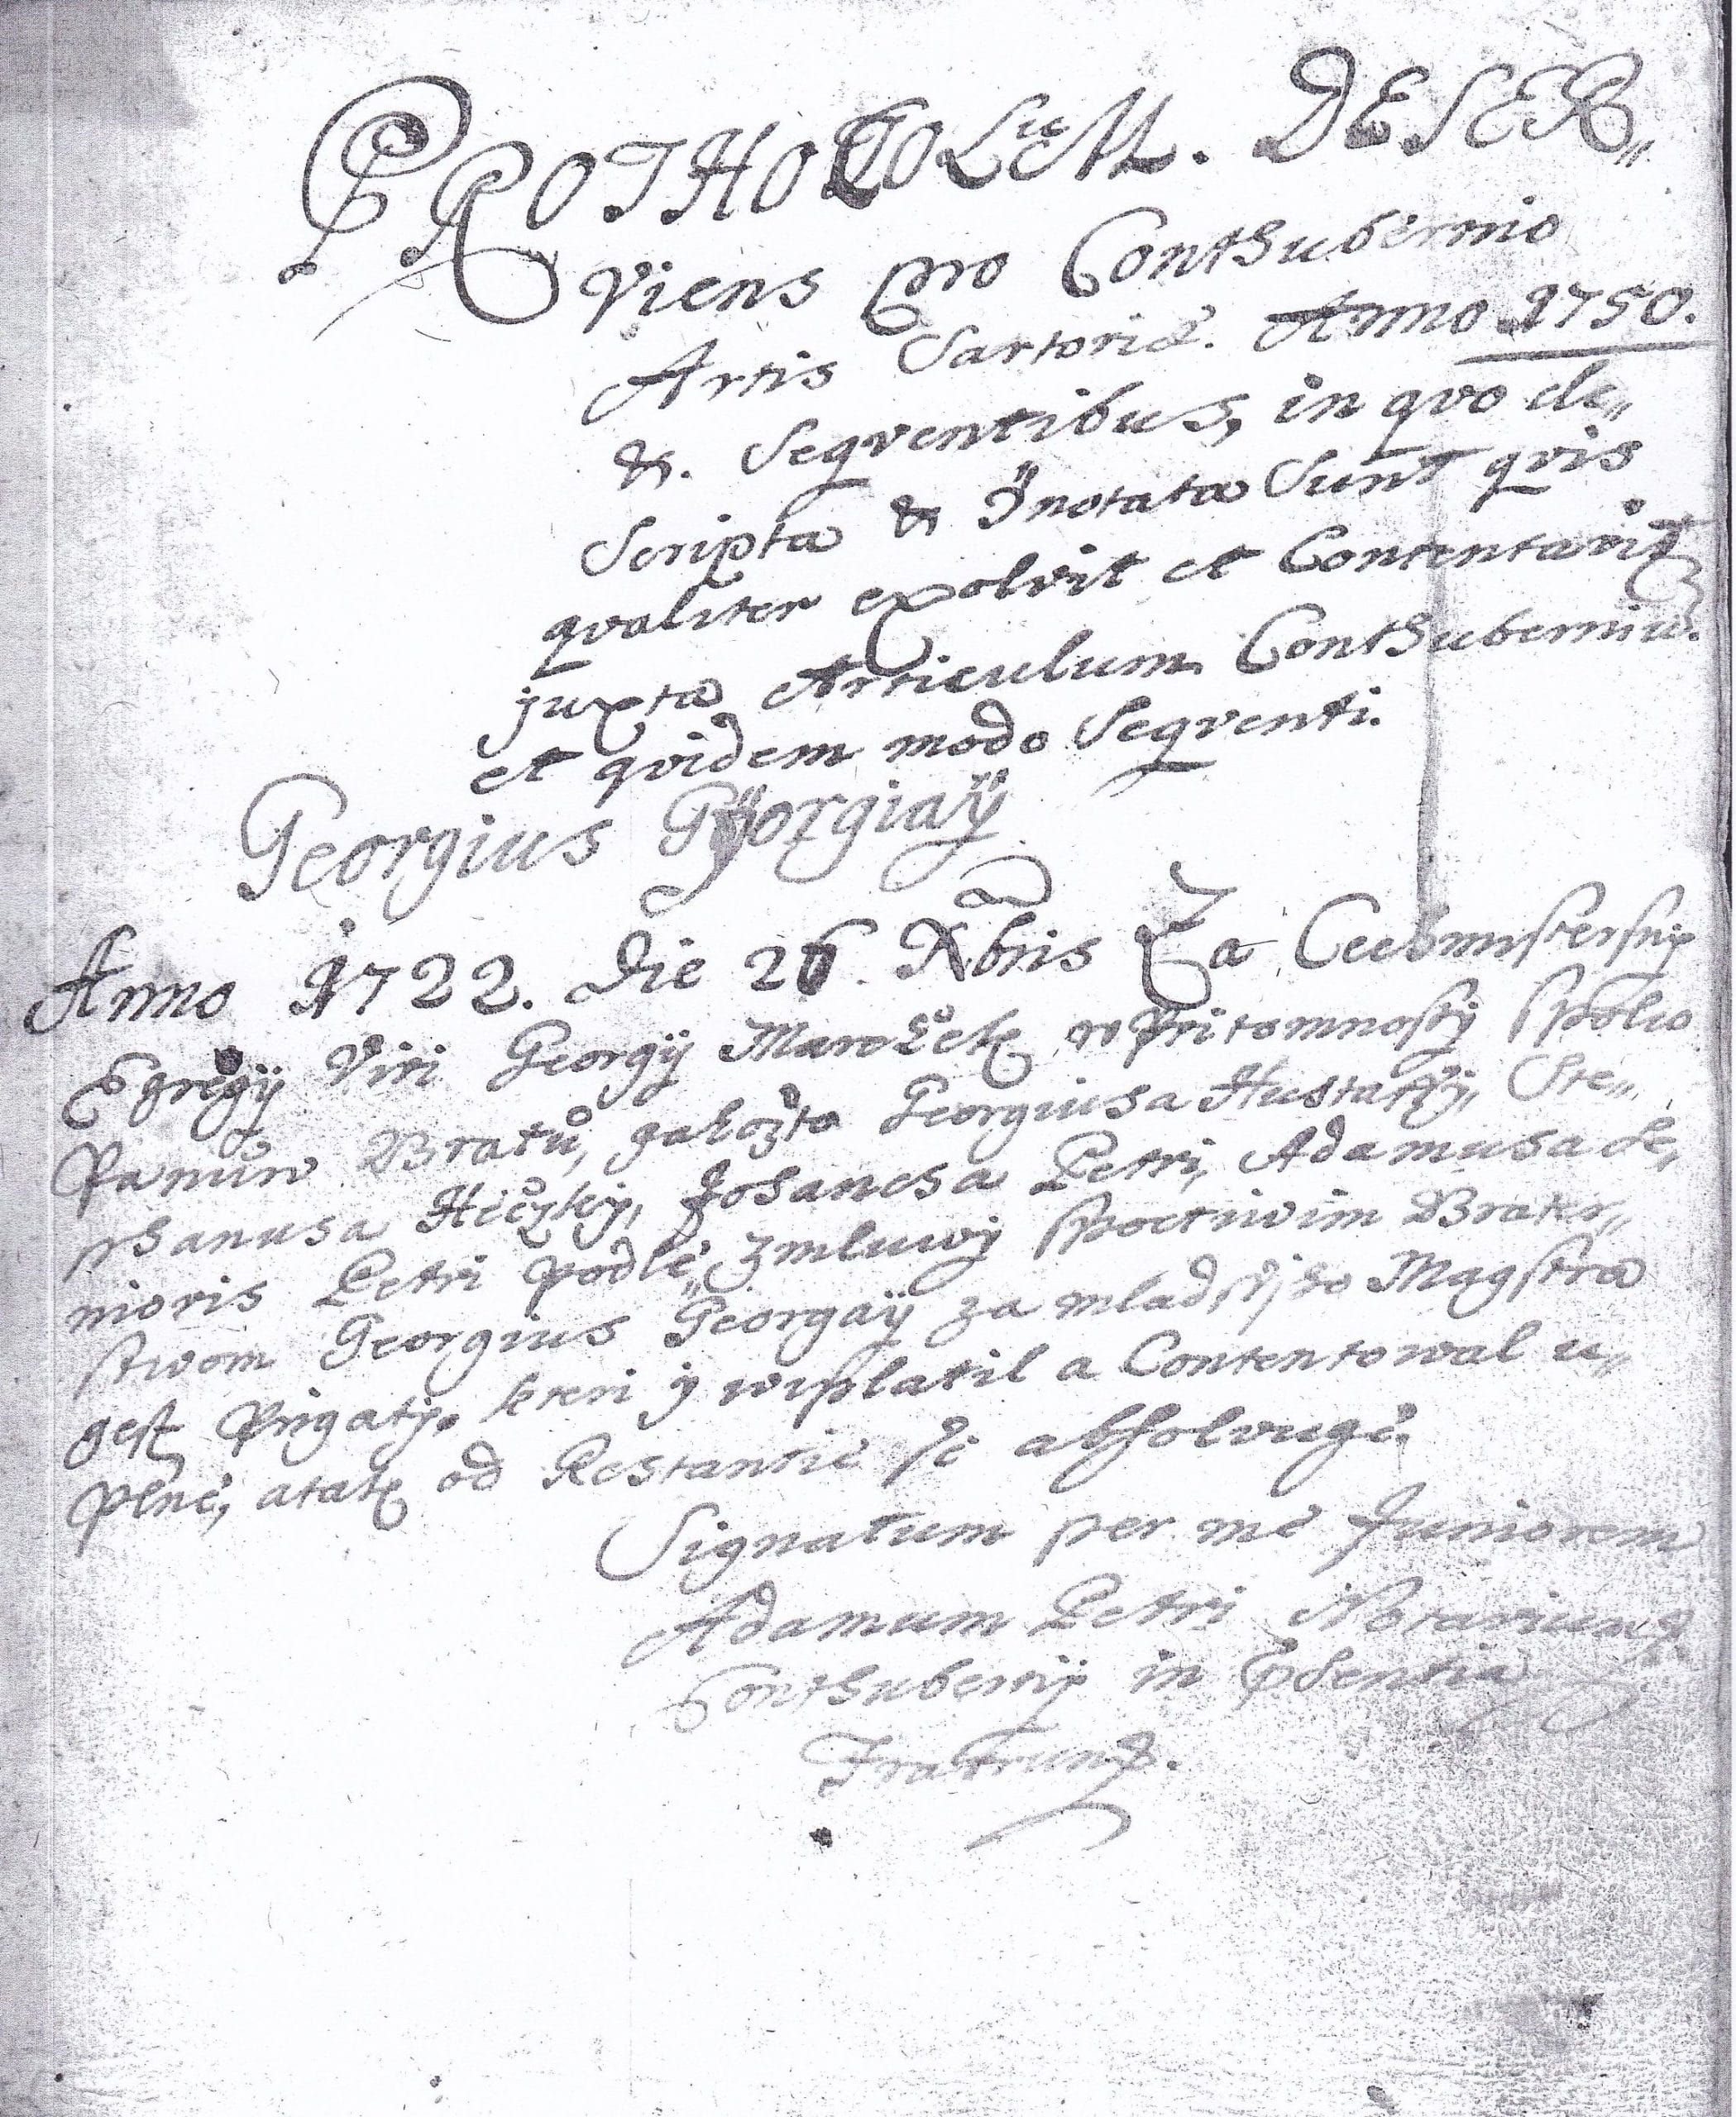 PROTHOCOLUM. DESER„
Viens pro Conthubernio
Artis Sartoriæ. Anno 1750.
&. Seqventibus, in qvo de„
Scripta & Ïnotata Sunt qvis
qvaliter exolvit et Contentavit
juxta Articulum Conthuberniu.
et qvidem modo Seqventi.
Georgius Gÿorgiaÿ
Anno 1722. Die 26. Xbris Za Cechmisterstvy
Egregÿ Viri Georgÿ w Pritomnosty Spolu
Panuw Bratů, gakožto Georgiusa Hustatÿ, Ste„
phanusa Johanesa Petri, Adamusa Se„
nioris Petri podle zmluwy Spoctiwim Brater„
stwom Georgius Georgaÿ za mladssyho Magstra
gest Prigaty. kteri y wiplatil a Contentowal u„
plnė, a tak od Restantie se absolvuge.
Signatum per me Juniorem
Adamum Petri Notarium
Conthuberny in Psentia
Fratrum.